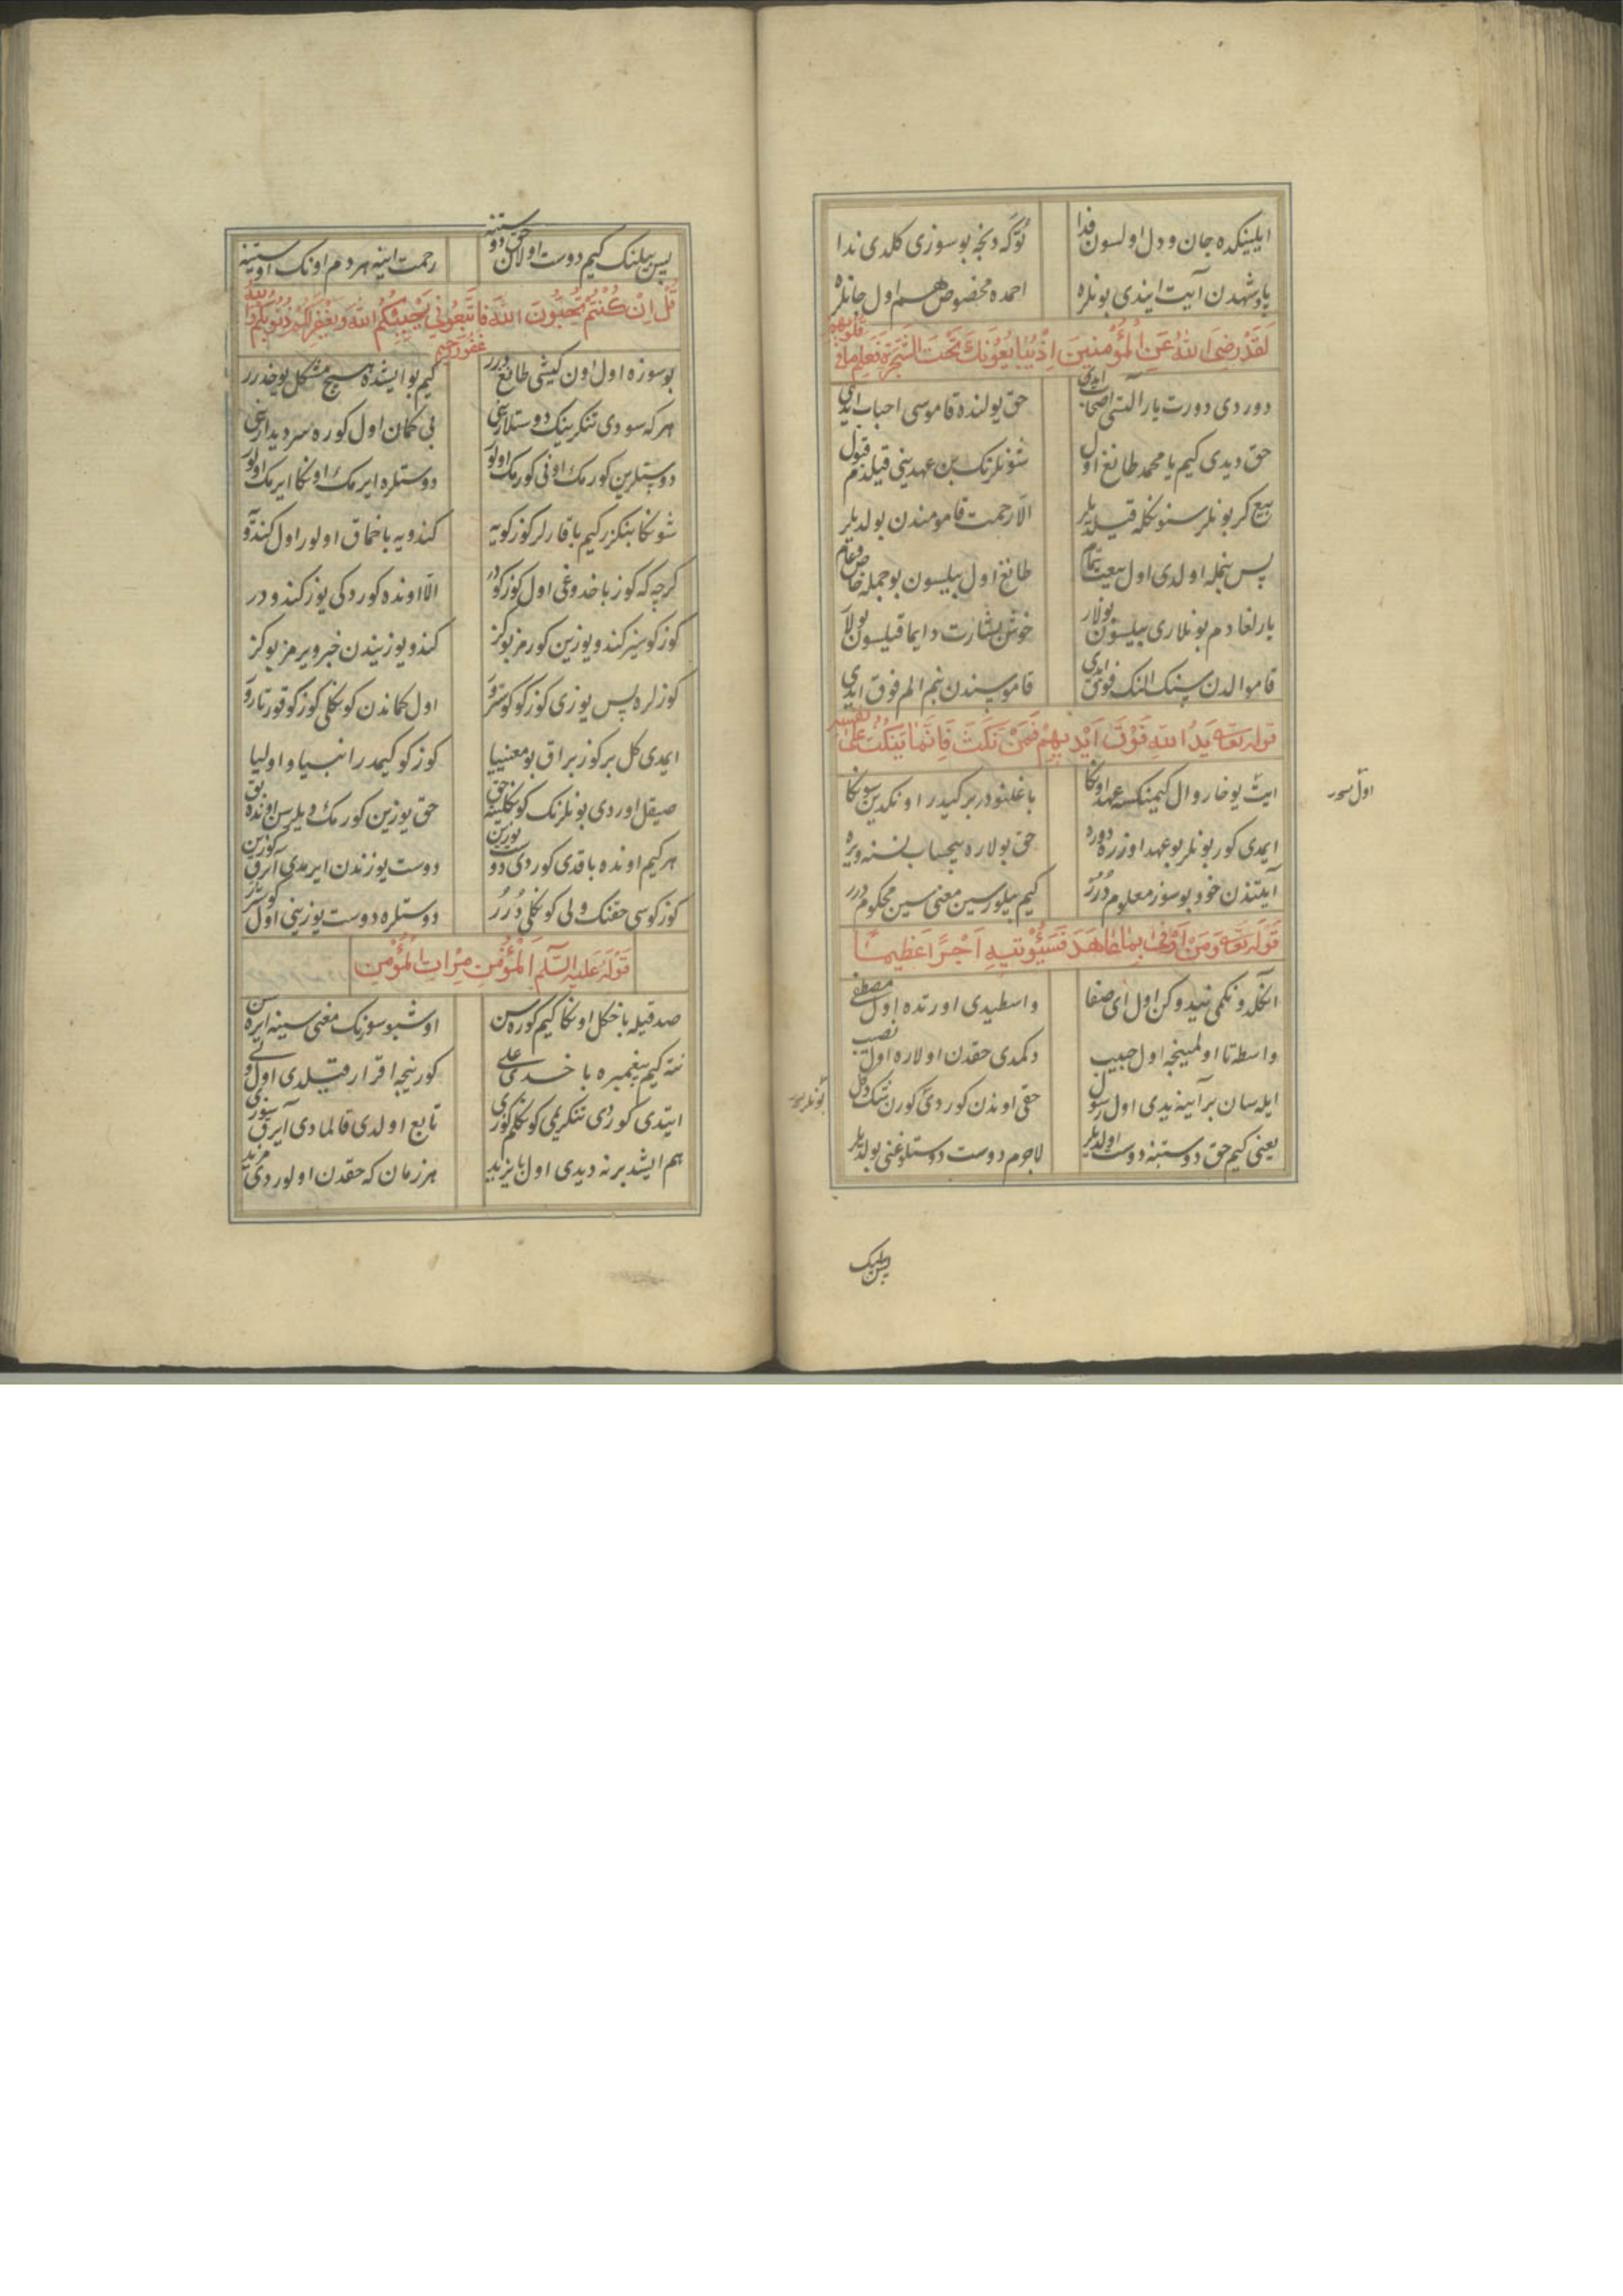 ایلینکده جان و دل اولسون فدا توکه دنجه بو سوزی کلدی ندا
پادشهدن آیت ایندی بونلره احمده مخصوص هم اول جانلره
لَقَدْ رَضِیَ اللّٰهُ عَنِ الْمُؤْمِنِینَ اِذْ یُبَایِعُونَكَ تَحْتَ الشَّجَرَةِ فَعَلِمَ مَا فِی قُلُوبِهِمْ
دوردی دورت یار آلتی اصحاب ایدی حق یولنده قاموسی احباب ایدی
حق دیدی کیم یا محمد طانغ اول شونلرنک بن عهدینی قیلدم قبول
بیع کر بونلر سنوکله قیلدیلر الا رحمت قامو مندن بولدیلر
پس بجمله اولدی اول بیعت تمام طانغ اول بیلسون بو جمله خاص و عام
یارلغادم بونلاری بیلسون بولار خوش بشارت دایما قیلسون بولار
قامو الدن سنک الک فوق ایدی قاموسندن بنم الم فوق ایدی
قوله تعالی یَدُ اللّٰهِ فَوْقَ اَیْدِیهِمْ فَمَنْ نَكَثَ فَاِنَّمَا یَنْكُثُ عَلٰی نَفْسِهِ
ایش یوخارو ال کیمنکسه عهد اوکا باغلنودر بر کیدر اونکدین سوکا
اول سور
ایمدی کور بونلر بو عهد اوزره دوره حق بولاره بیحساب نسنه ویره
آیتدن خود بو سوز معلوم دُرُر کیم بیلورسین معنی سین محکوم درر
قوله تعالی وَمَنْ اَوْفٰی بِمَا عَاهَدَ فَسَیُؤْتِیهِ اَجْرًا عَظِیمًا
اکلدونکمی نیدوکن اول ای صفا واسطیدی اورتده اول مصطفی
واسطه تا اولمینجه اول حبیب دکمدی حقدن اولاره اول نصیب
ایله سان بر آینه یدی اول رسول حقی اوندن کوردی کورن نتک دکل
بونلر سور
یعنی کیم حق دوستنه دوست اولدیلر لاجرم دوست دوستلوغنی بولدیلر
پس بیلنک
پس بیلنک کیم دوست اولان حق دوستنه رحمت اینه هر دم اونک اوستنه
قُلْ اِنْ كُنْتُمْ تُحِبُّونَ اللّٰهَ فَاتَّبِعُونِی یُحْبِبْكُمُ اللّٰهُ وَیَغْفِرْ لَكُمْ ذُنُوبَكُمْ وَاللّٰهُ غَفُورٌ رَحِیمٌ
بو سوزه اول اون کیشی طانغ درر کیم بو ایشده هیچ مشکل یوخدرر
هر که سودی تنکرینک دوستلارغی بی کمان اول کوره سر دیدارغی
دوستلرین کورمک اونی کورمک اولور دوستلره ایرمک اونکا ایرمک اولور
شونکا بنکزر کیم باقارلر کوزکویه کندویه باخماق اولور اول کندو
کرچه که کوز باخدوغی اول کوزکودر الا اونده کوردکی یوز کندودر
کوزکوسیز کندو یوزین کورمز بو کز کندو یوزیندن خبر ویرمز بو کز
کوزلره پس یوزی کوزکو کوسترور اول کماندن کوکلی کوزکو قورتارور
ایمدی کل بر کوز براق بو معنییا کوزکو کیمدر انبیا و اولیا
صیقل اوردی بونلرنک کوکلینه حق حق یوزین کورمک دیلرسن اونده بق
هر کیم اونده باقدی کوردی دوست یوزین دوست یوزندن ایرمدی آیرق کوزین
کوزکوسی حقنک ولی کوکلی دُرُر دوستلره دوست یوزینی اول کوسترر
قَوْلُهُ عَلَیْهِ السَّلَم اَلْمُؤْمِن مِرْآت الْمُؤْمِنِ
صدقیله باخکل اونکا کیم کوره سن اوشبو سوزنک معنی سینه ایره سن
نته کیم پیغمبره باخدی علی کورنیجه اقرار قیلدی اول ولی
ایتدی کوردی تنکریمی کوکلم کوزی تابع اولدی قالمادی آیرق سوزی
هم ایشد بر نه دیدی اول بایزید هر زمان که حقدن اولوردی مزید